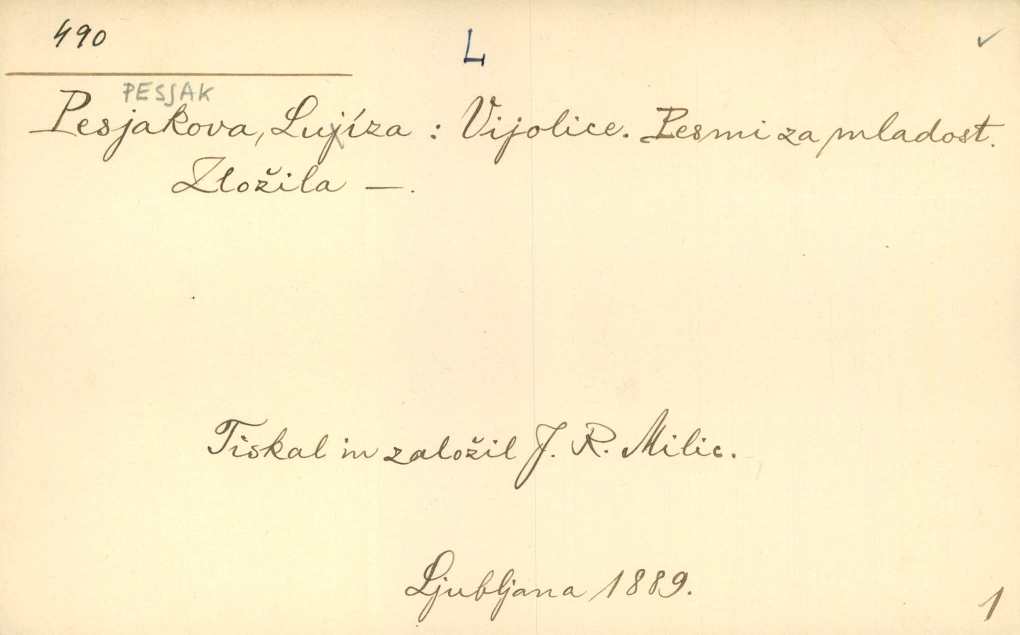 490
L
PESJAK
Pesjakova, Lujíza : Vijolice. Pesmi za mladost.
Zložila —.
Tiskal in založil J. R. Milic.
Ljubljana 1889.
1